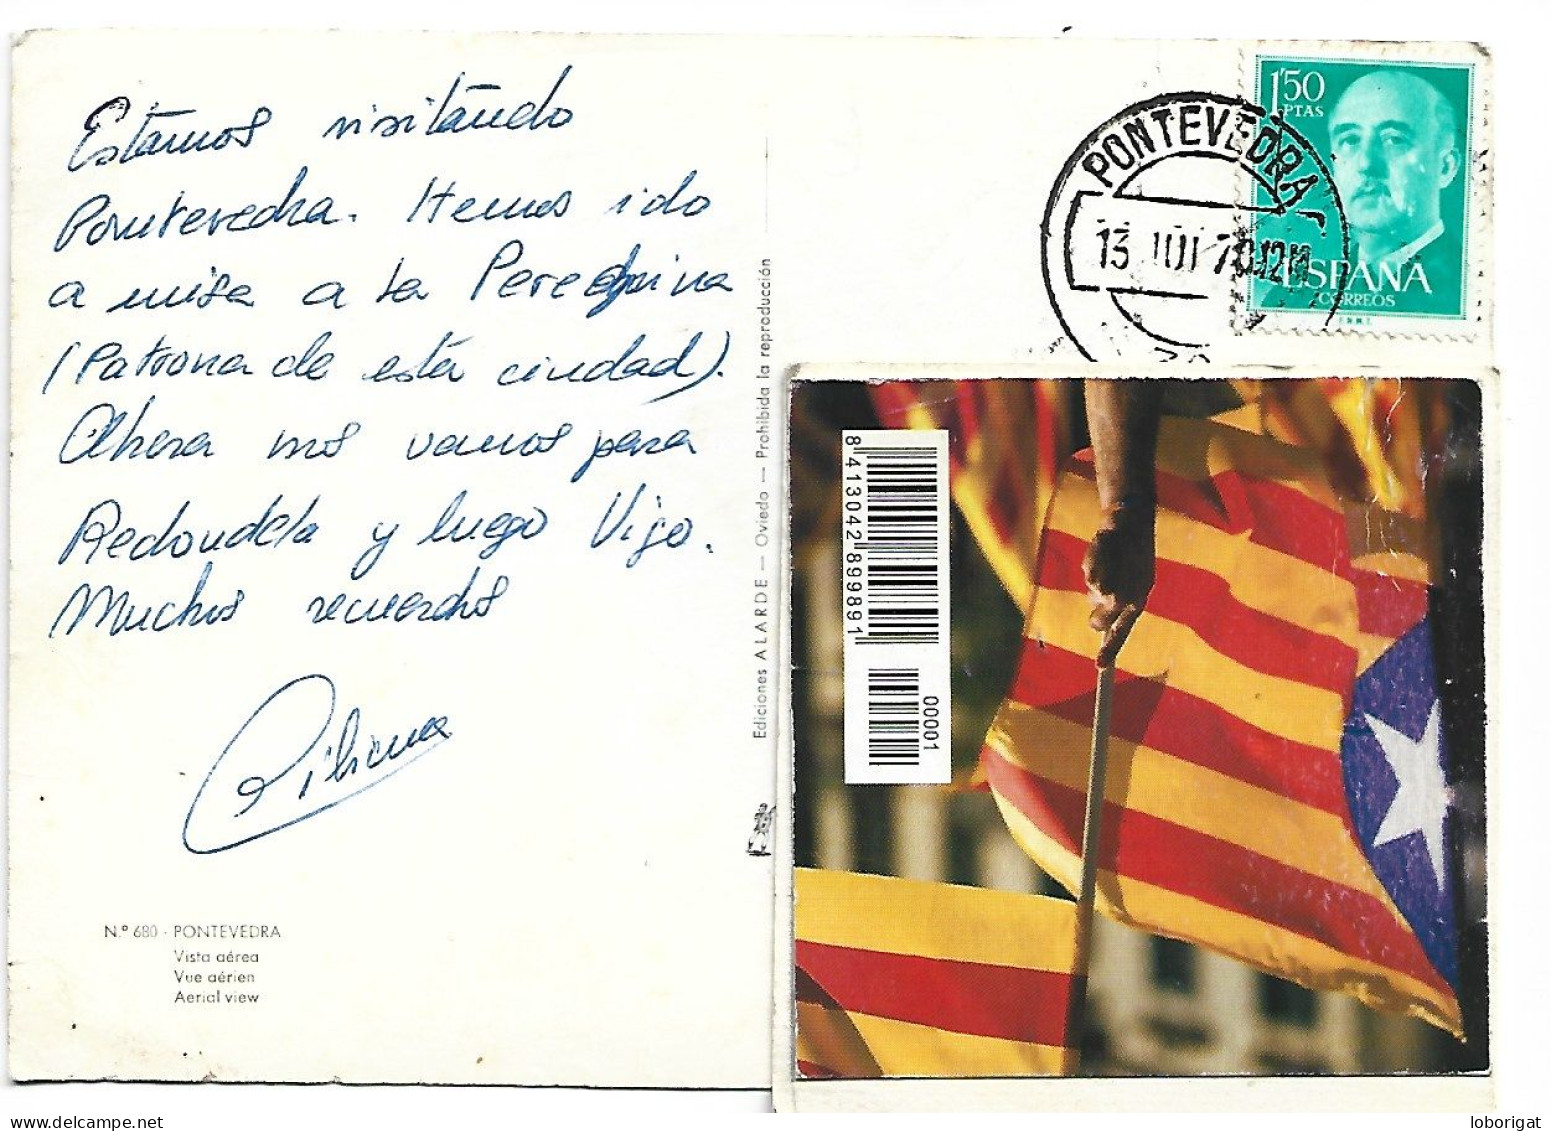 Estamos visitando
Pontevedra. Hemos ido
a misa a la Peregrina
(Patrona de esta ciudad).
Ahora nos vamos para
Redondela y luego Vigo.
Muchos recuerdos
N.º 680 - PONTEVEDRA
Vista aérea
Vue aérien
Aerial view
Ediciones ALARDE — Oviedo — Prohibida la reproducción
PONTEVEDRA
13 JUL 70 12M
1'50
PTAS
ESPAÑA
CORREOS
F.N.M.T.
8 413042 899891
00001
delcampe.net
loborigat